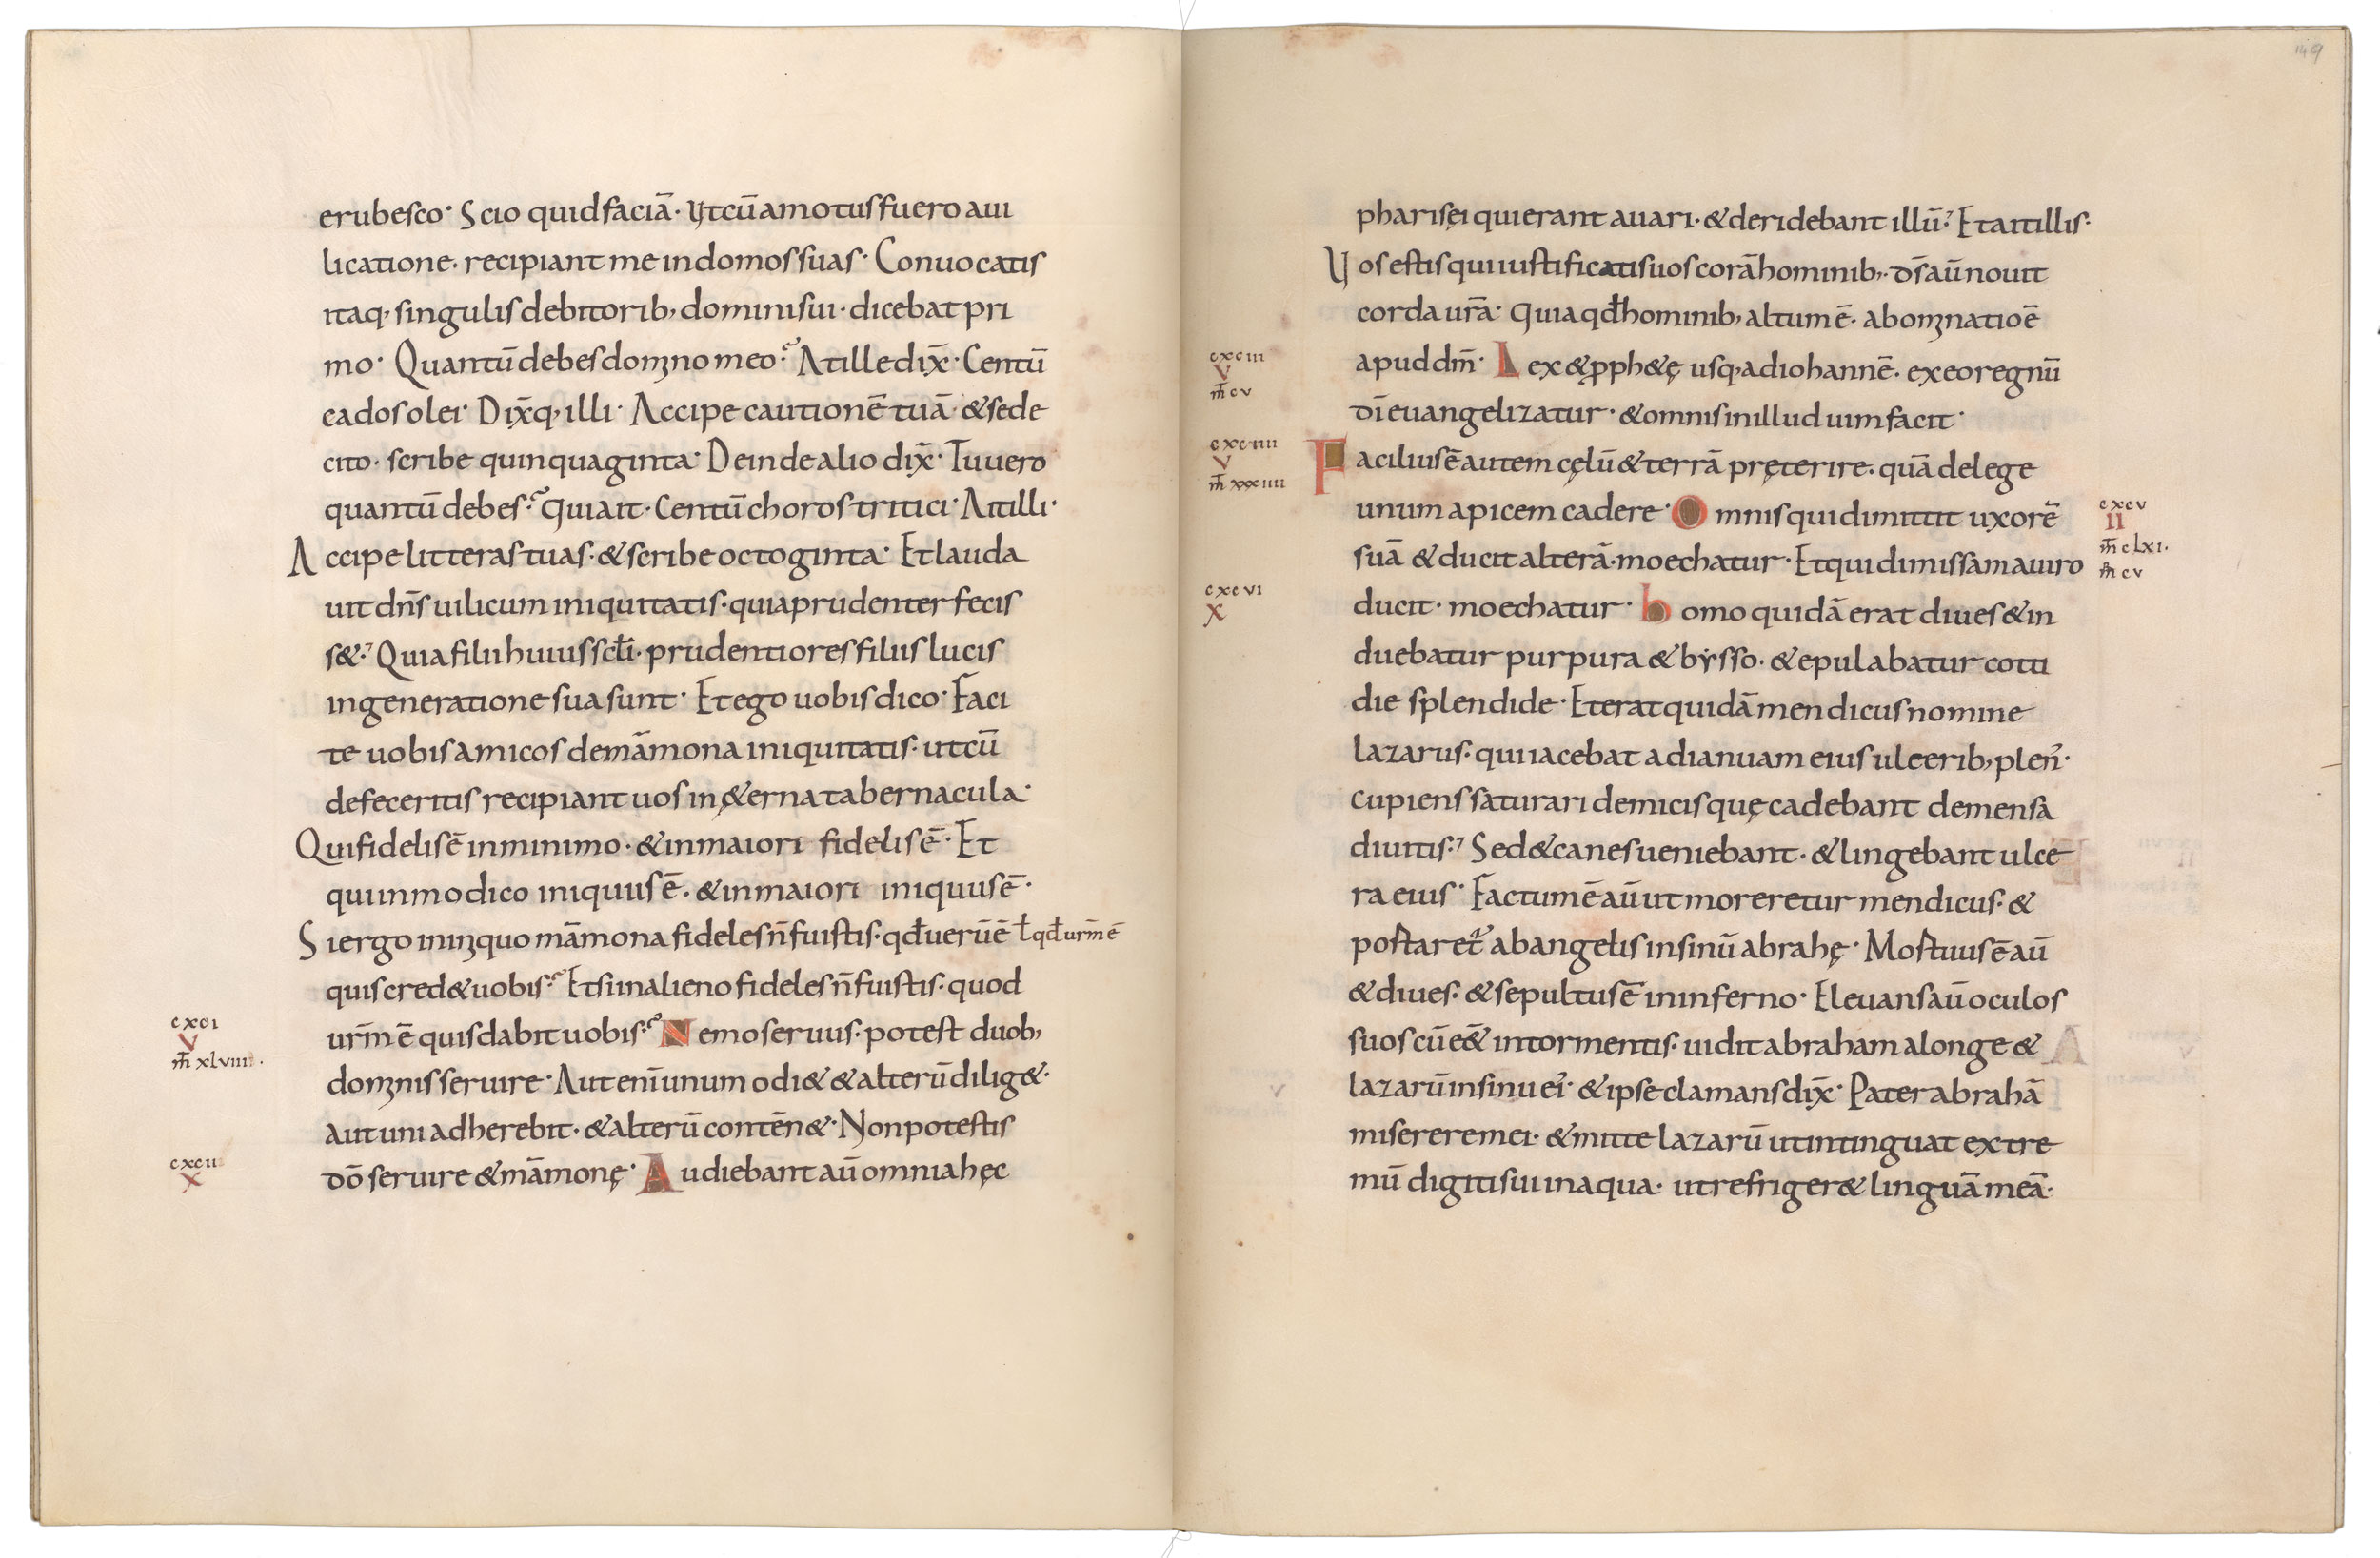 erubesco· Scio quid faciā· Ut cū amotus fuero a ui
licatione· recipiant me in domos suas· Conuocatis
itaq; singulis debitorib; domini sui· dicebat pri
mo· Quantū debes domino meo? At ille dix̄· Centū
cados olei· Dix̄q; illi· Accipe cautionē tuā· & sede
cito· scribe quinquaginta· Deinde alio dix̄· Tu uero
quantū debes? Qui ait· Centū choros tritici· Ait illi·
Accipe litteras tuas· & scribe octoginta· Et lauda
uit dn̄s uilicum iniquitatis· quia prudenter fecis
s&· Quia filii huius sc̄li· prudentiores filiis lucis
in generatione sua sunt· Et ego uobis dico· Faci
te uobis amicos de māmona iniquitatis· ut cū
defeceritis recipiant uos in ę&erna tabernacula·
Qui fidelis ē in minimo· & in maiori fidelis ē· Et
qui in modico iniquus ē· & in maiori iniquus ē·
Si ergo in iniquo māmona fideles n̄ fuistis· qđ uerū ē ł qđ urm̄ ē
quis cred& uobis? Et si in alieno fideles n̄ fuistis· quod
cxci
urm̄ ē quis dabit uobis? Nemo seruus· potest duob;
V
m̄ xlviii·
dominis seruire· Aut enī unum odi& & alterū dilig&·
aut uni adherebit· & alterū contēn&· Non potestis
cxcii
dō seruire & māmonę· Audiebant aū omnia hęc
X
149
pharisęi qui erant auari· & deridebant illū· Et ait illis·
Vos estis qui iustificatis uos corā hominib;· ds̄ aū nouit
corda urā· Quia qđ hominib; altum ē· abominatio ē
cxciii
apud dm̄· Lex & pph&ę usq; ad iohannē· ex eo regnū
V
m̄ cv
dī euangelizatur· & omnis in illud uim facit·
cxciiii
Facilius ē autem cęlū & terrā pręterire· quā de lege
V
m̄ xxxiiii
unum apicem cadere· Omnis qui dimittit uxorē
cxcv
II
m̄ clxi·
m̄ cv
suā & ducit alterā· moechatur· Et qui dimissam a uiro
cxcvi
X
ducit· moechatur· homo quidā erat diues & in
duebatur purpura & bysso· & epulabatur cotti
die splendide· Et erat quidā mendicus nomine
lazarus· qui iacebat ad ianuam eius ulcerib; plen̉·
cupiens saturari de micis quę cadebant de mensa
diuitis· Sed & canes ueniebant· & lingebant ulce
ra eius· Factum ē aū ut moreretur mendicus· &
postaret᷒ ab angelis in sinū abrahę· Mostuus ē aū
& diues· & sepultus ē in inferno· Eleuans aū oculos
suos cū ēē& in tormentis· uidit abraham a longe &
lazarū in sinu ei᷒· & ipse clamans dix̄· Pater abrahā
miserere mei· & mitte lazarū ut intinguat extre
mū digiti sui in aqua· ut refriger& linguā meā·